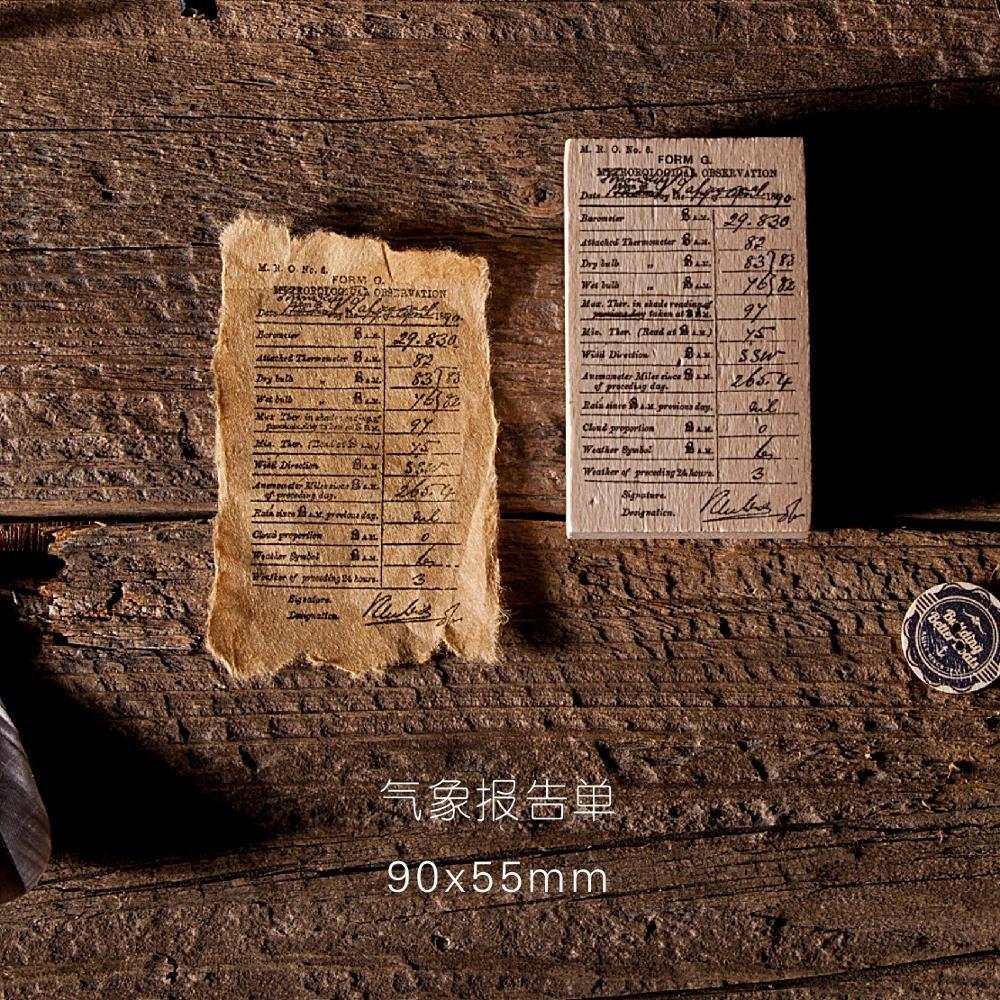 M. R. O. No. 6.
FORM G.
METEOROLOGICAL OBSERVATION
Date the April 1890.
Barometer 8 A.M. 29.830
Attached Thermometer 8 A.M. 82
Dry bulb „ 8 A.M. 83 } 83
Wet bulb „ 8 A.M. 76 } 82
Max. Ther. in shade reading of
previous day taken at 8 A.M. 97
Min. Ther. (Read at 8 A.M.) 75
Wind Direction 8 A.M. SSW
Anemometer Miles since 8 A.M.
of preceding day. 265.4
Rain since 8 A.M. previous day.
Cloud proportion 8 A.M. 0
Weather Symbol 8 A.M. b
Weather of preceding 24 hours. 3
Signature.
Designation.
M. R. O. No. 6.
FORM G.
METEOROLOGICAL OBSERVATION
Date the April 1890.
Barometer 8 A.M. 29.830
Attached Thermometer 8 A.M. 82
Dry bulb „ 8 A.M. 83 } 83
Wet bulb „ 8 A.M. 76 } 82
Max. Ther. in shade reading of
previous day taken at 8 A.M. 97
Min. Ther. (Read at 8 A.M.) 75
Wind Direction 8 A.M. SSW
Anemometer Miles since 8 A.M.
of preceding day. 265.4
Rain since 8 A.M. previous day.
Cloud proportion 8 A.M. 0
Weather Symbol 8 A.M. b
Weather of preceding 24 hours. 3
Signature.
Designation.
气象报告单
90x55mm